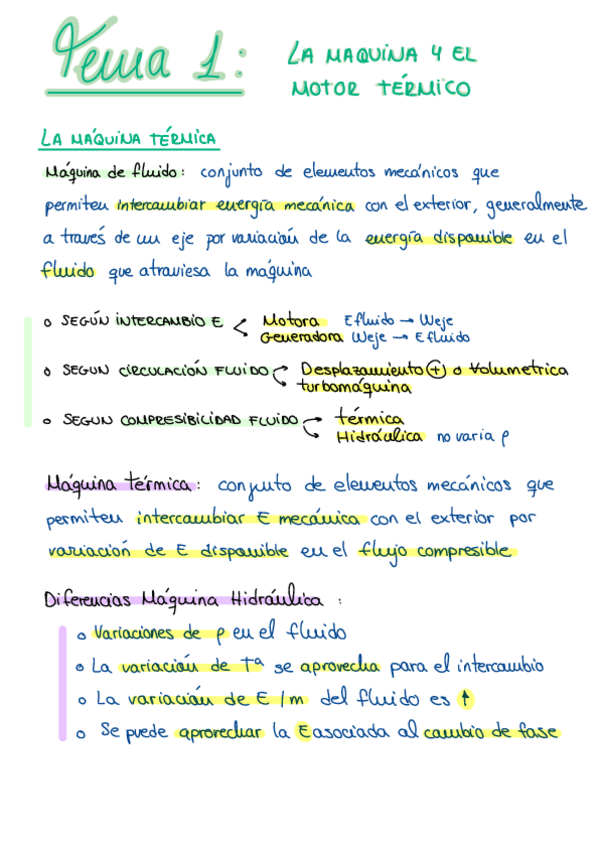 Tema 1: LA MAQUINA Y EL
MOTOR TÉRMICO
LA MÁQUINA TÉRMICA
Máquina de fluido: conjunto de elementos mecánicos que
permiten intercambiar energía mecánica con el exterior, generalmente
a través de un eje por variación de la energía disponible en el
fluido que atraviesa la máquina
o SEGÚN INTERCAMBIO E < Motora Efluido → Weje
Generadora Weje → Efluido
o SEGUN CIRCULACIÓN FLUIDO Desplazamiento ⊕ o Volumetrica
turbomáquina
o SEGUN COMPRESIBILIDAD FLUIDO térmica
Hidráulica no varia ρ
Máquina térmica: conjunto de elementos mecánicos que
permiten intercambiar E mecánica con el exterior por
variación de E disponible en el flujo compresible
Diferencias Máquina Hidráulica :
o Variaciones de ρ en el fluido
o La variación de Tª se aprovecha para el intercambio
o La variación de E/m del fluido es ↑
o Se puede aprovechar la E asociada al cambio de fase